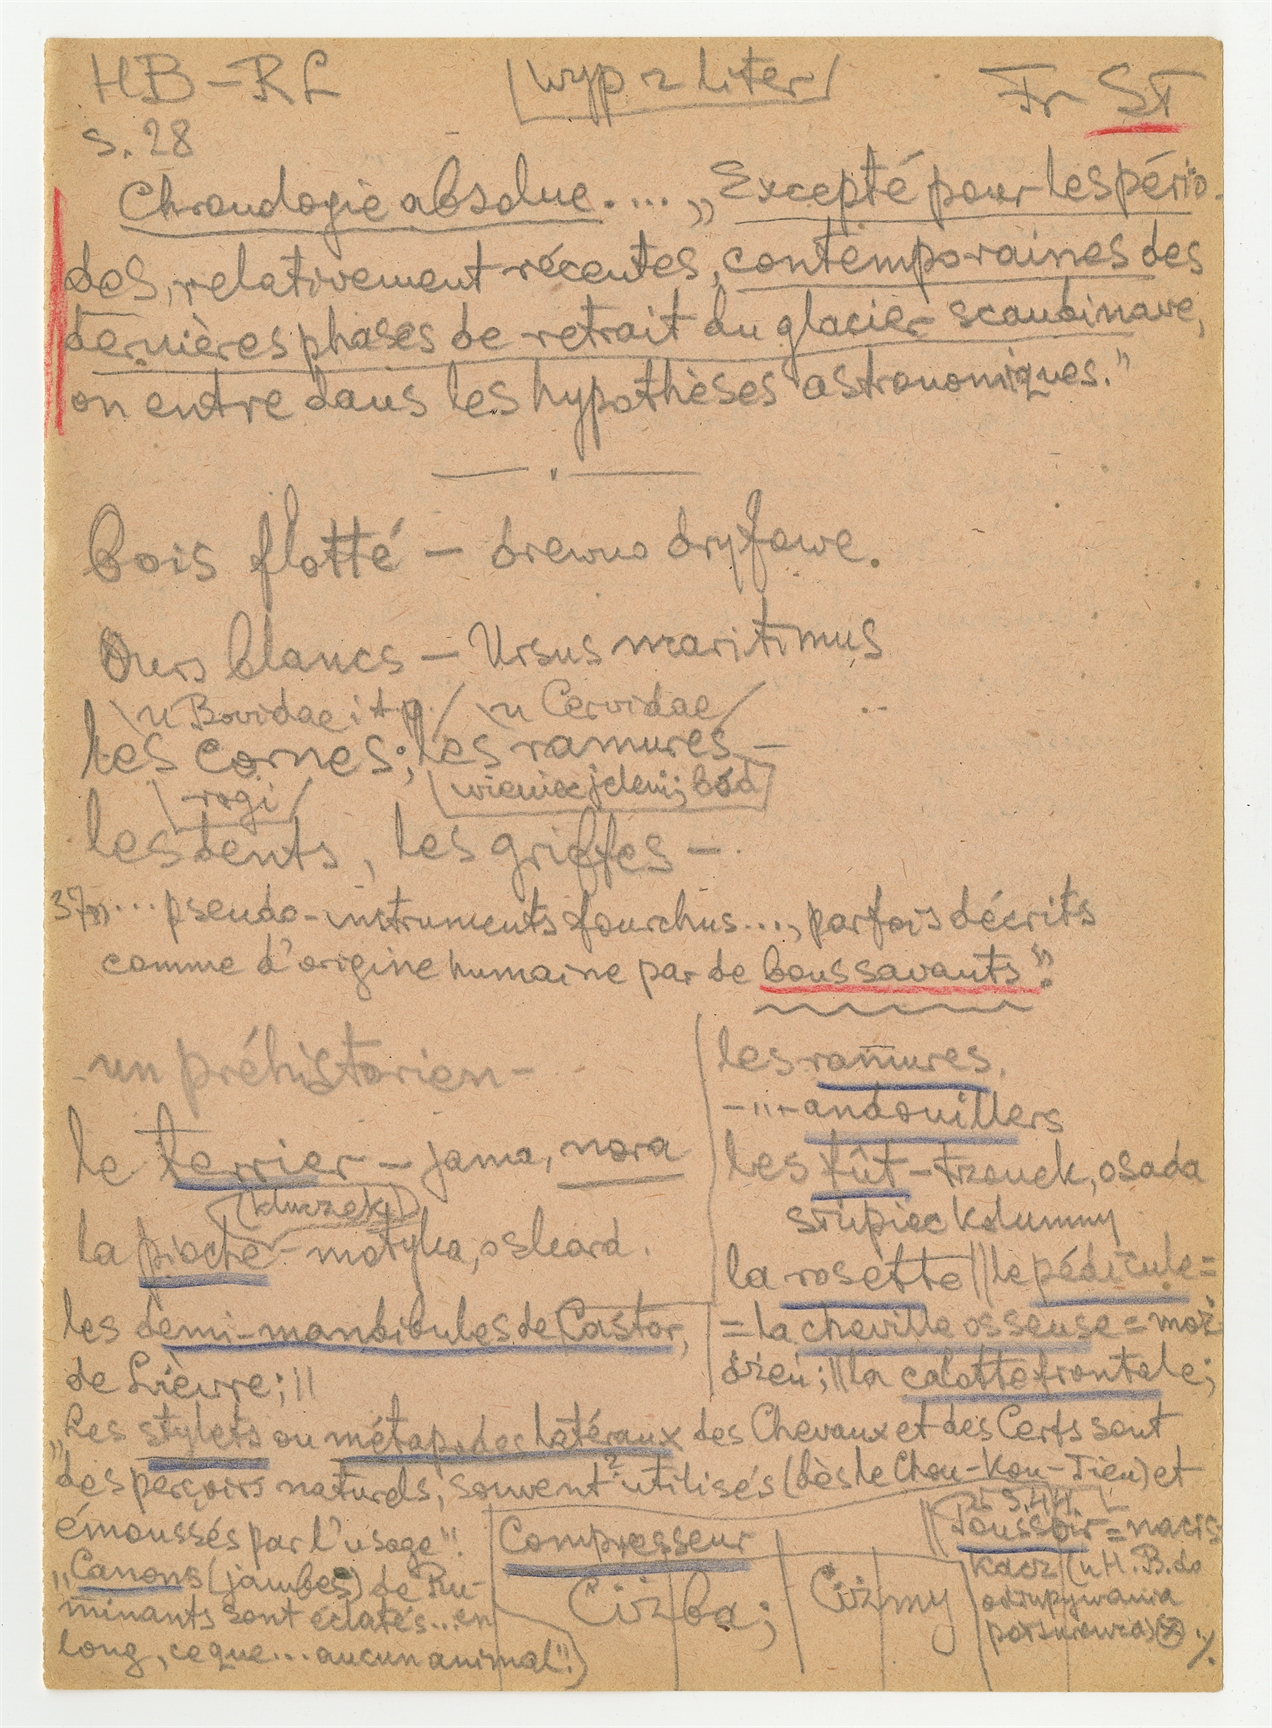 HB-RL
wyp z liter
Fr ST
s. 28
Chronologie absolue.... „Excepté pour les pério-
des, relativement récentes, contemporaines des
dernières phases de retrait du glacier scandinave,
on entre dans les hypothèses astronomiques."
bois flotté — drewno dryfowe.
Ours blancs — Ursus maritimus
u Bovidae i t p. / u Cervidae
les cornes; les ramures —
rogi
wieniec jeleni;
les dents, les griffes —
37 „... pseudo-instruments fourchus..., parfois décrits
comme d'origine humaine par de bons savants".
un préhistorien —
le terrier — jama, nora
(kluczek)
la pioche — motyka, oskard.
les demi-mandibules de Castor,
de Lièvre; ||
les ramures,
—"— andouillers
les fût — trzonek, osada
słupiec kolumny
la rosette || le pédicule =
= la cheville osseuse = moż
dżeń; || la calotte frontale;
„Les stylets ou métapodes latéraux des Chevaux et des Cerfs sont
des perçoirs naturels, souvent ? utilisés (dès le Chou-Kou-Tien) et
émoussés par l'usage".
„Canons (jambes) de Ru-
minants sont éclatés... en
long, ce que... aucun animal".)
Compresseur
Ciżba; Ciżmy
s. 44.
|| Poussoir = nacis-
kacz (u H.B. do
odłupywania